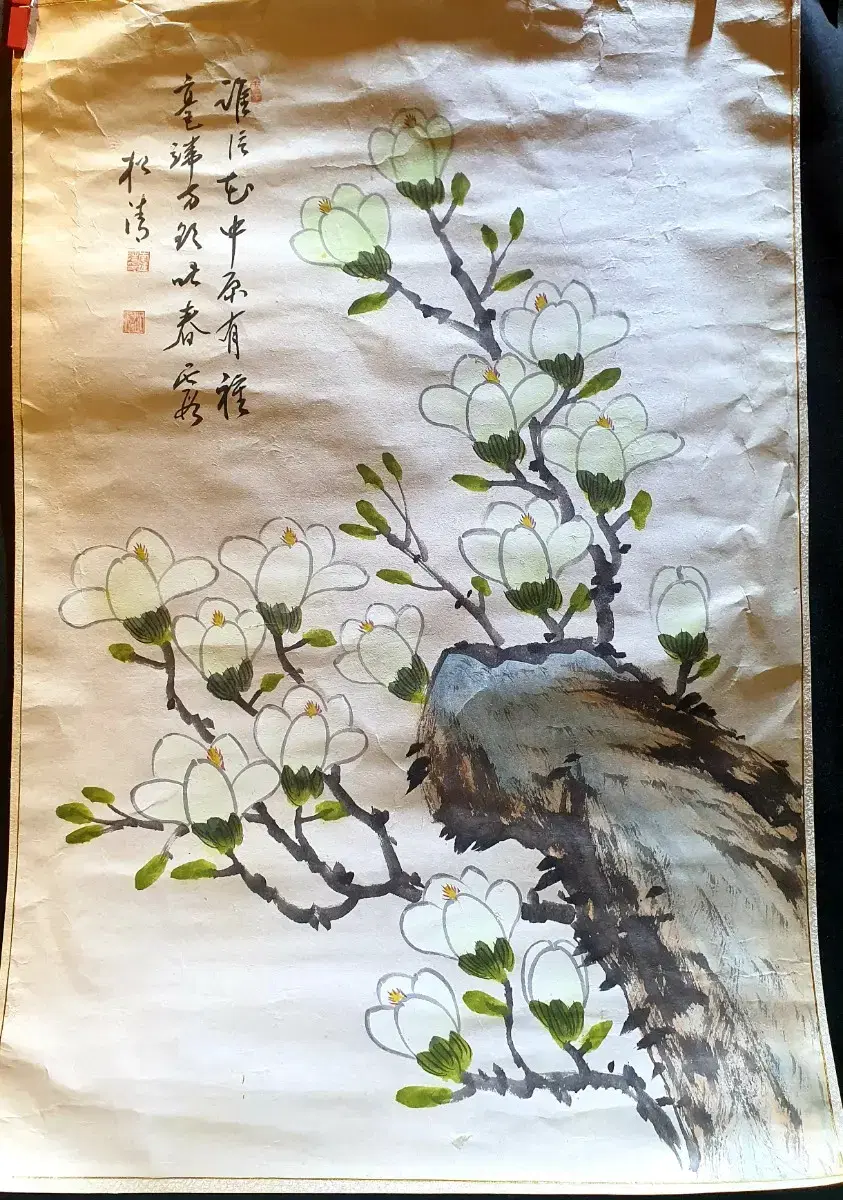 誰信花中原有種
毫端方欲吐春霞
松清